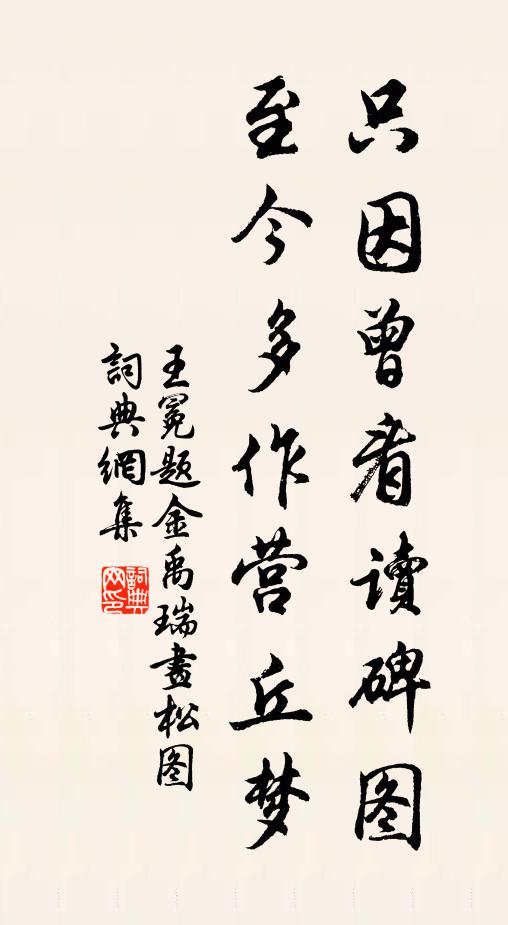 只因曾看读碑图
至今多作营丘梦
王冕题金禹瑞画松图
词典网集
词典网印